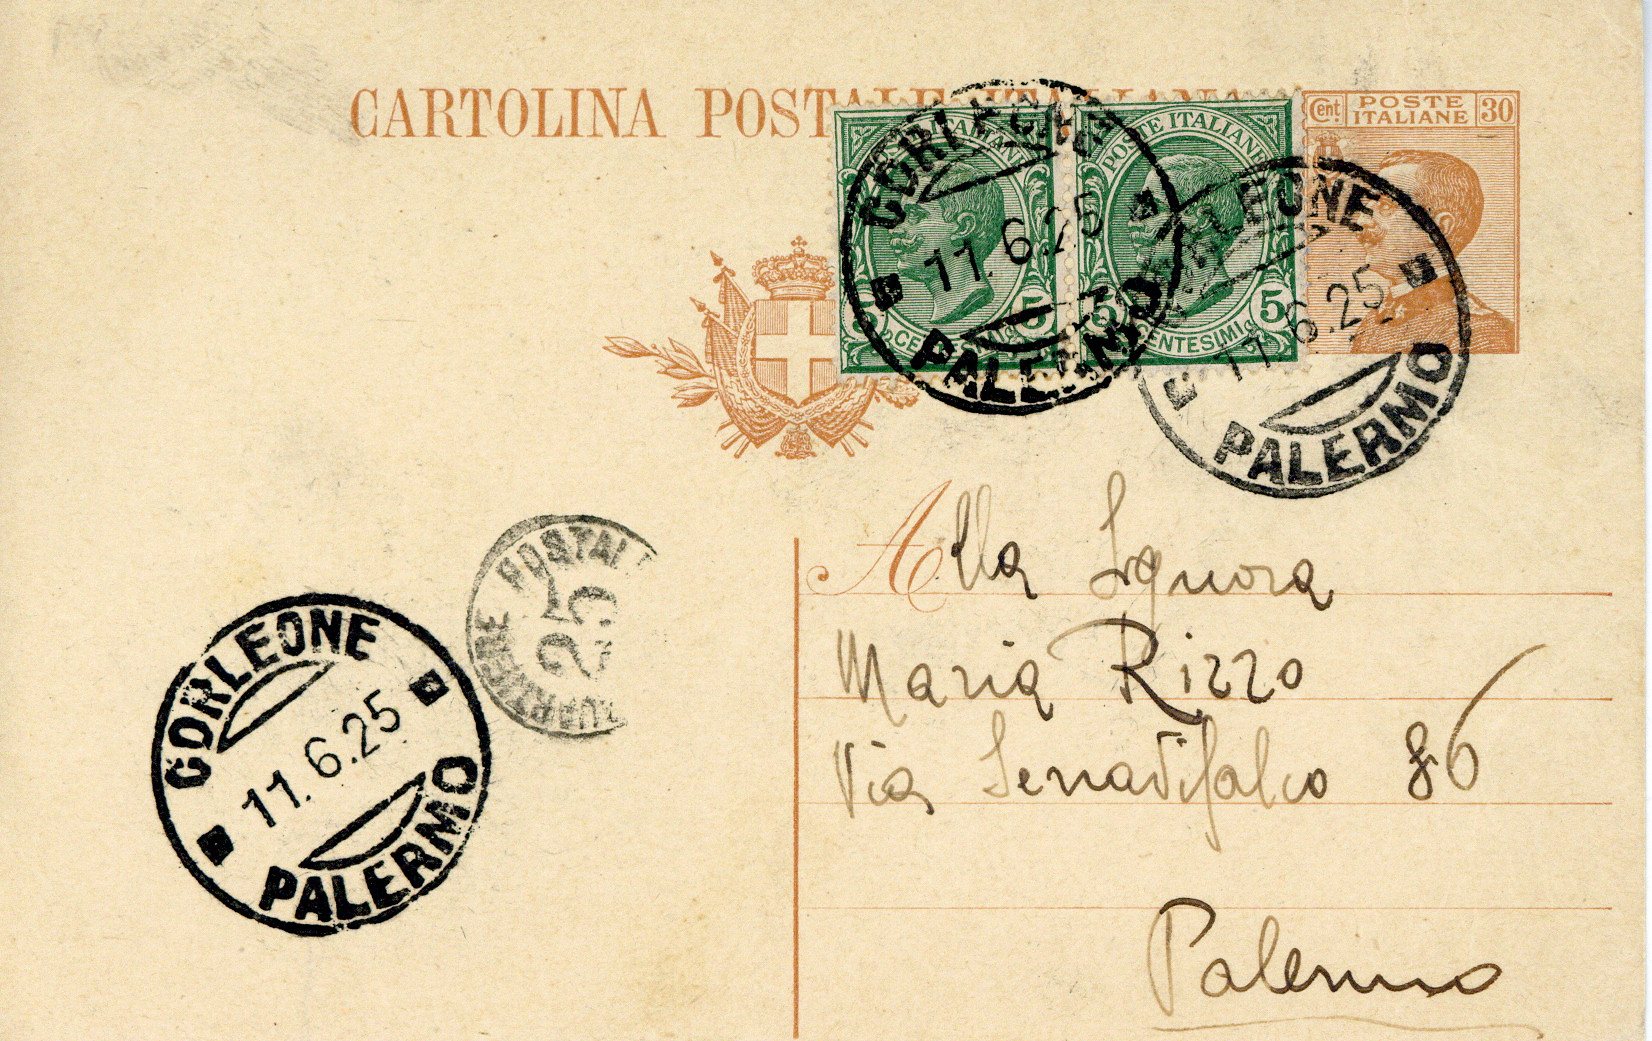 CARTOLINA POSTALE ITALIANA
Cent. POSTE ITALIANE 30
POSTE ITALIANE
5 CENTESIMI 5
CORLEONE
11.6.25
PALERMO
CORLEONE
11.6.25
PALERMO
PORTALETTERE
25
CORLEONE
11.6.25
PALERMO
Alla Signora
Maria Rizzo
Via Serradifalco 86
Palermo